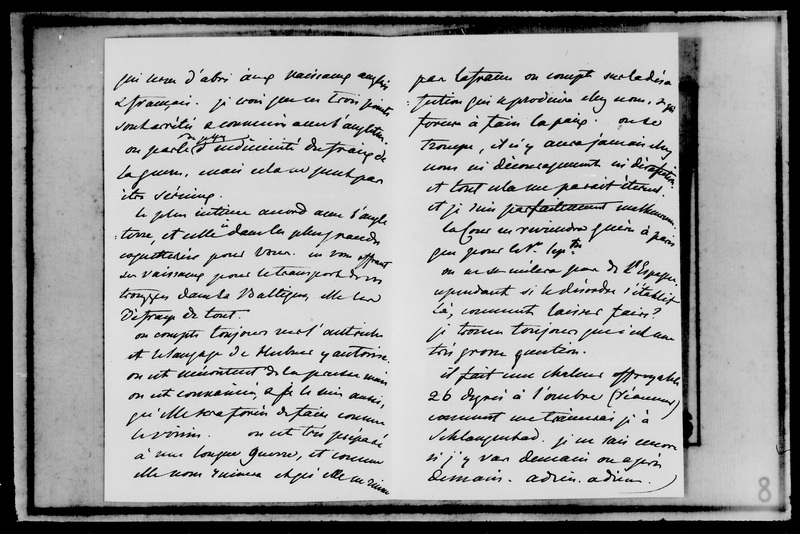 qui serve d'abri aux vaisseaux anglais
& français. je crois que ces trois points
sont arrêtés & convenus avec l'angleterre.
on parle d'indemnité des frais de
la guerre, mais cela ne peut pas
être sérieux.
le plus intime accord avec l'angle
terre, et elle dans les plus grandes
coquetteries pour vous. en vous offrant
ses vaisseaux pour le transport de vos
trouppes dans la Baltique, elle sera
défrayée de tout.
on compte toujours sur l'autriche
et le langage de Hubner y autorise.
on est mécontent de la prusse mais
on est convaincu, & je le suis aussi,
qu'elle sera forcée de faire comme
le voisin. on est très préparé
à une longue guerre, et comme
elle nous ruinera et que elle ne ruine
pas la france on compte sur la désa
fection qui se produira chez nous, & qui
forcera à faire la paix. on se
trompe, il n'y aura jamais chez
nous ni découragement ni désaffection.
et tout cela me parait éternel.
et je suis parfaitement malheureuse.
la Cour ne reviendra guère à paris
que pour le
on ne se mêlera pas de l'Espagne.
cependant si le désordre s'établit
là, comment laisser faire?
je trouve toujours que c'est une
très grosse question.
il fait une chaleur effroyable
26 degrés à l'ombre (réaumur)
comment me trainerai je à
Schlangenbad. je ne sais encore
si j'y vais demain ou après
demain. adieu. adieu.
8